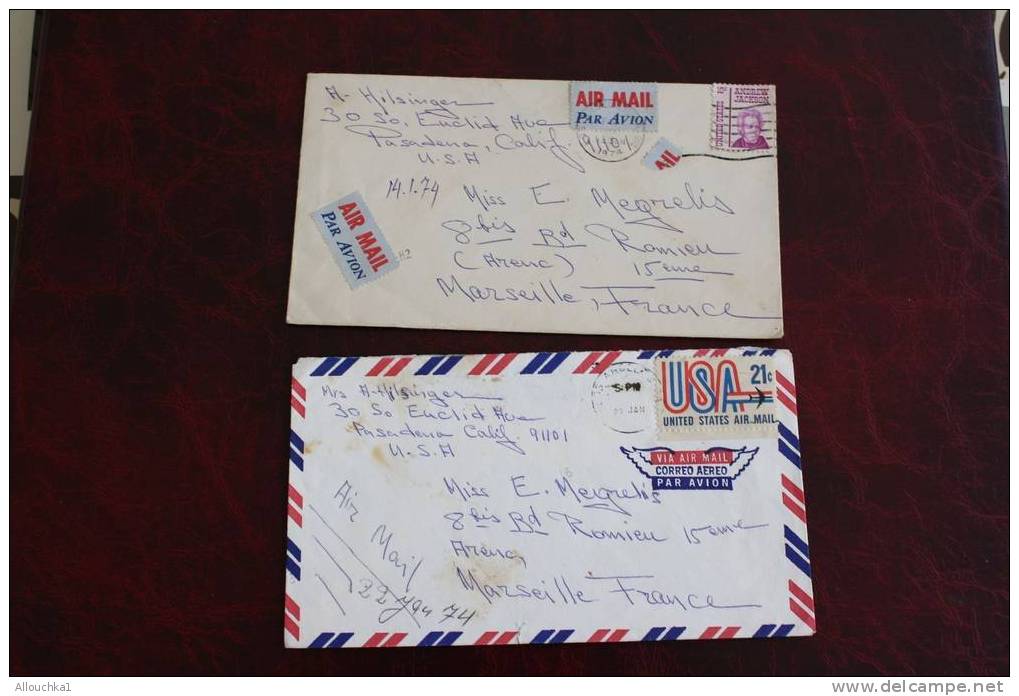 A- Hilsinger
30 So. Euclid Ave
Pasadena, Calif.
U.S.A
14.1.74
AIR MAIL
PAR AVION
91101
1974
AIL
ANDREW
JACKSON
UNITED STATES
AIR MAIL
PAR AVION
Miss E. Megrelis
8bis Bd Romieu
(Arenc) 15eme
Marseille, France
Mrs A-Hilsinger
30 So Euclid Ave
Pasadena Calif. 91101
U.S.A
5 PM
22 JAN
USA 21c
UNITED STATES AIR MAIL
VIA AIR MAIL
CORREO AEREO
PAR AVION
Miss E. Megrelis
8bis Bd Romieu 15eme
Arenc,
Marseille France
Air Mail
22 Jan 74
Allouchka1
www.delcampe.net